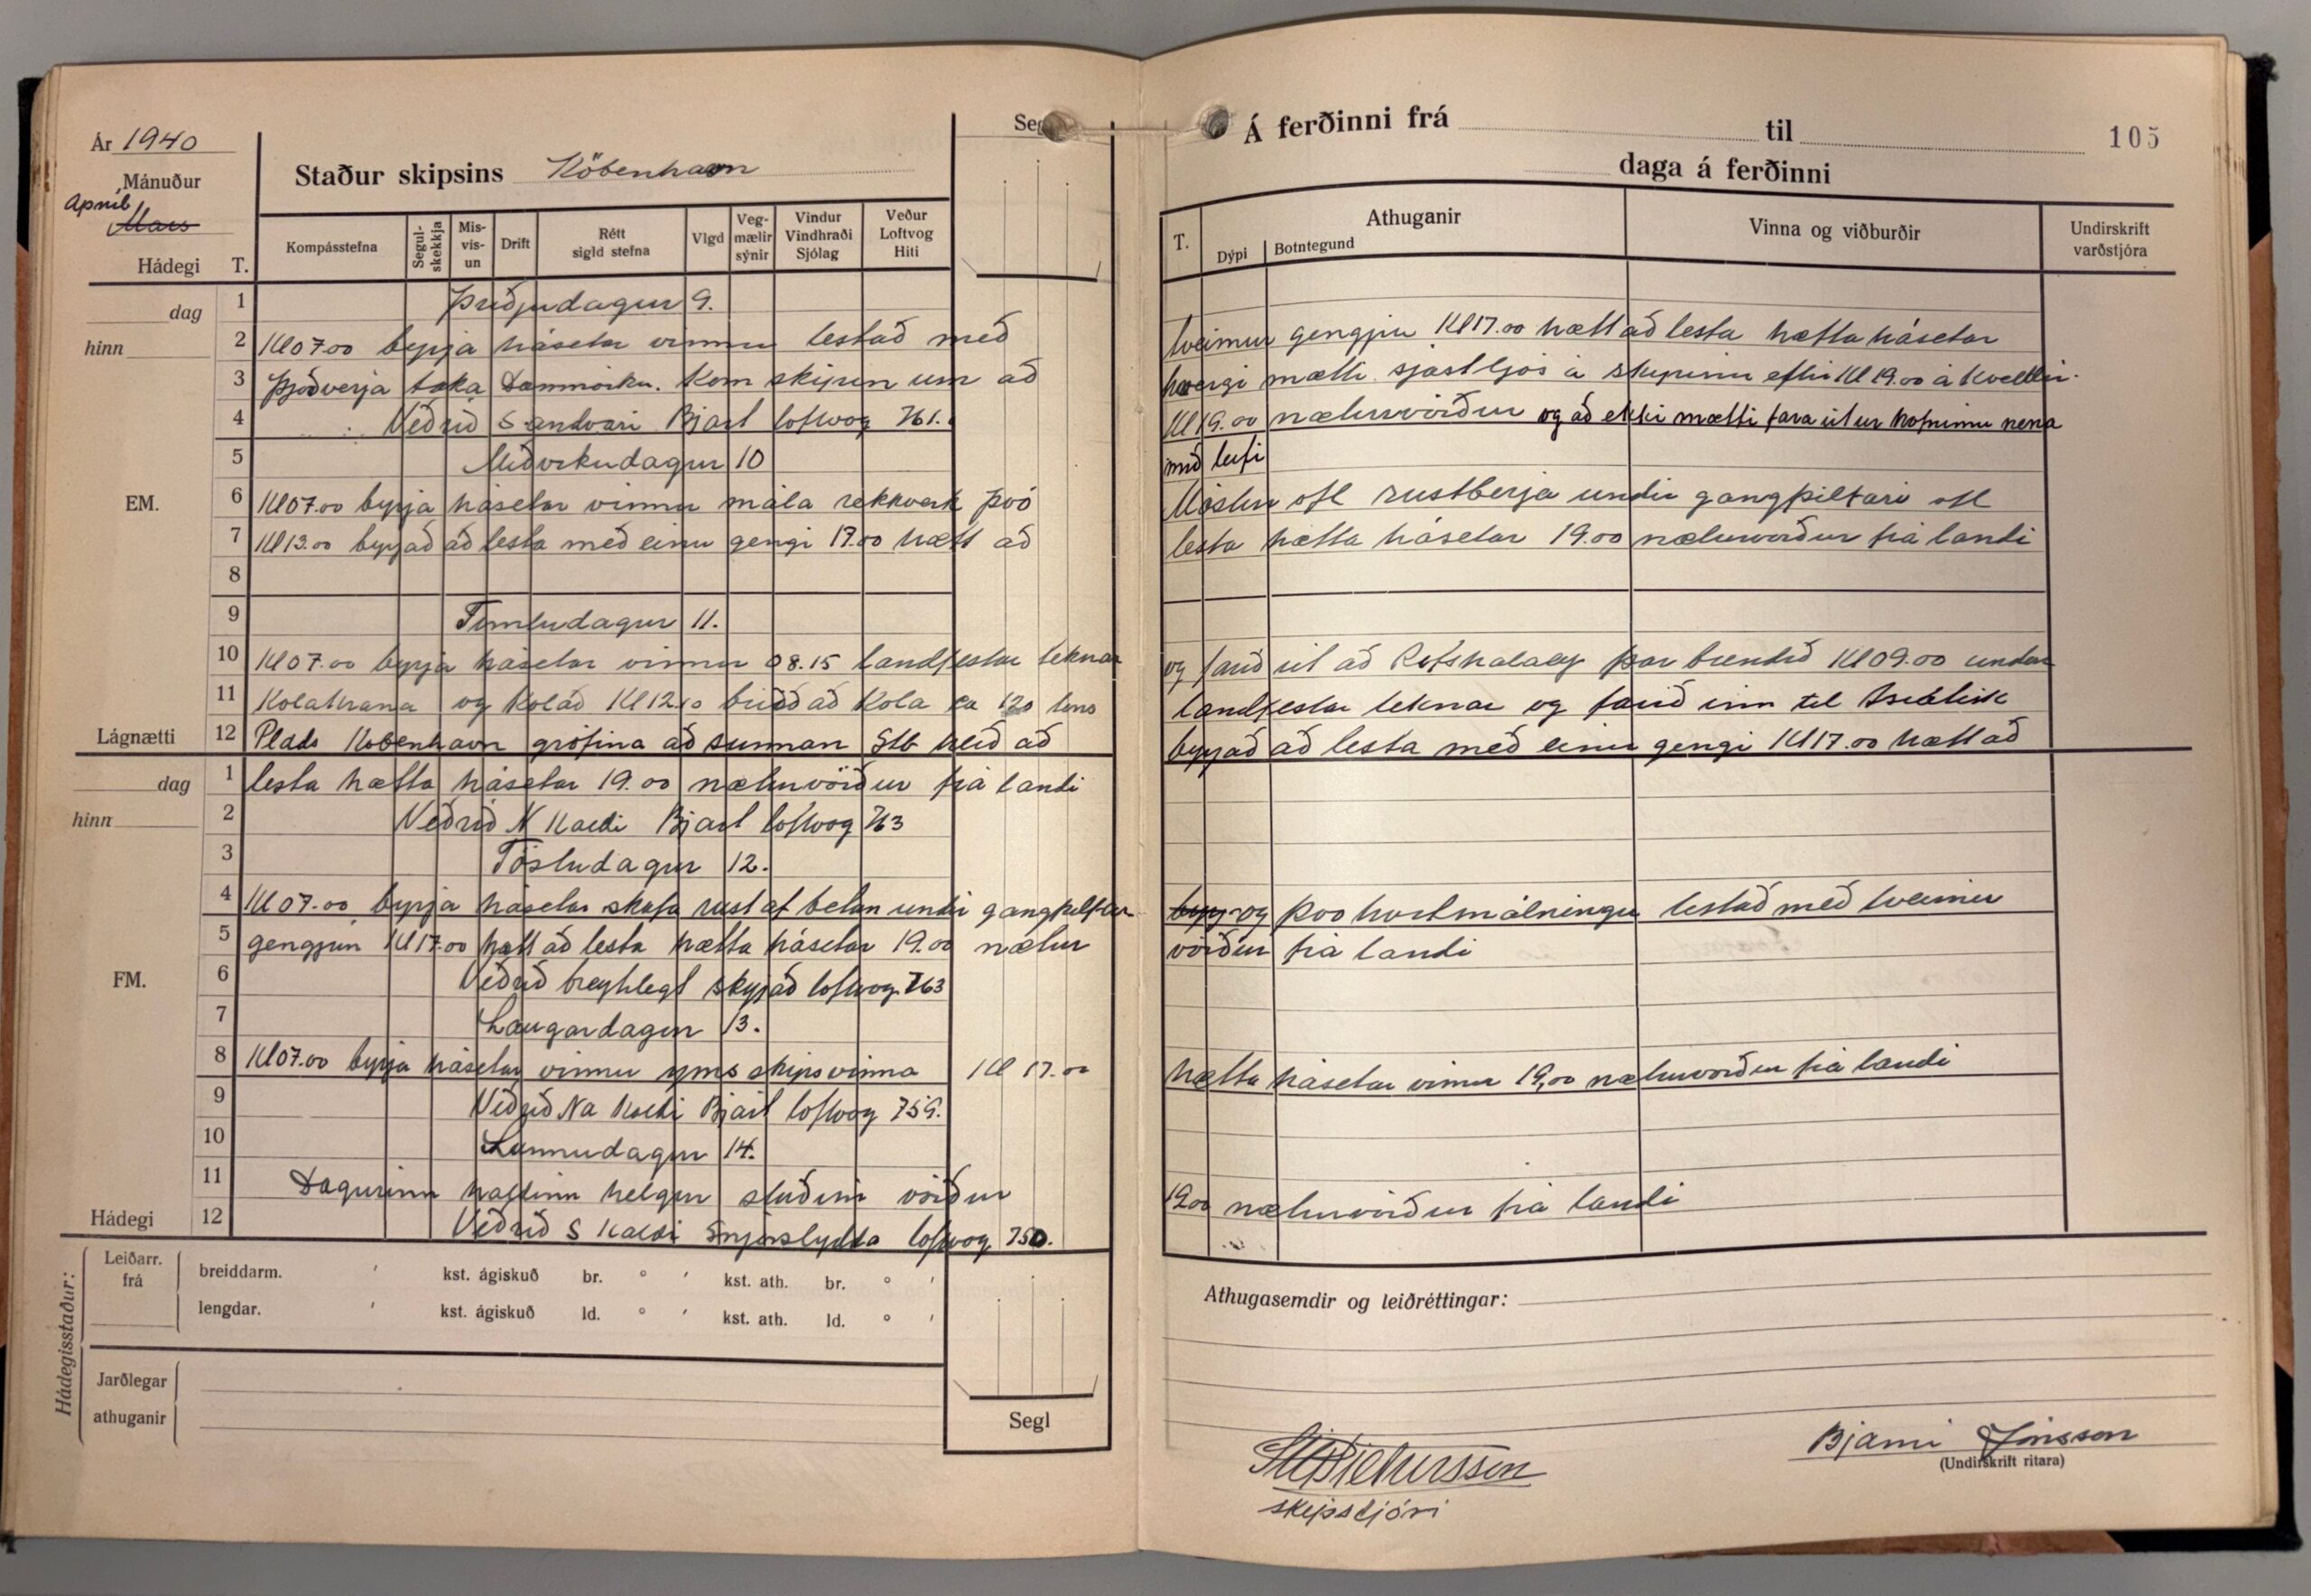 Ár 1940
Mánuður
Apríl
Mars
Hádegi T.
Staður skipsins Köbenhavn
Kompásstefna
Segul-skekkja
Mis-vis-un
Drift
Rétt sigld stefna
Vlgd
Veg-mælir sýnir
Vindur Vindhraði Sjólag
Veður Loftvog Hiti
dag
hinn
EM.
Lágnætti
1 Þriðjudagur 9.
2 Kl 07.00 byrja hásetar vinnu lestað með
3 Þjóðverja taka Danmörku. Kom skipun um að
4 Veðrið S andvari Bjart loftvog 761.
5 Miðvikudagur 10
6 Kl 07.00 byrja hásetar vinnu mála rekkverk þvo
7 Kl 13.00 byrjað að lesta með einu gengi 17.00 hætt að
8
9 Fimtudagur 11.
10 Kl 07.00 byrja hásetar vinnu 08.15 landfestar teknar
11 Kolakrana og kolað Kl 12.10 búið að kola ca 120 tons
12 Plads Köbenhavn grófina að sunnan Stb hlið að
dag
hinn
FM.
Hádegi
1 lesta hætta hásetar 19.00 næturvörður frá landi
2 Veðrið N Kaldi Bjart loftvog 763
3 Föstudagur 12.
4 Kl 07.00 byrja hásetar skafa rust af betan undir gangpilttar
5 gengjum Kl 17.00 hætt að lesta hætta hásetar 19.00 nætur
6 Veðrið breytilegt skyjað loftvog 763
7 Laugardagur 13.
8 Kl 07.00 byrja hásetar vinnu yms skipsvinna Kl 17.00
9 Veðrið Na Kaldi Bjart loftvog 759.
10 Sunnudagur 14.
11 Dagurinn haldinn helgur vörður
12 Veðrið S Kaldi Snjóslydda loftvog 750.
Hádegisstaður:
Leiðarr. frá
breiddarm. ′ kst. ágiskuð br. ° ′ kst. ath. br. ° ′
lengdar. ′ kst. ágiskuð ld. ° ′ kst. ath. ld. ° ′
Jarðlegar
athuganir
Segl
Á ferðinni frá til 105
daga á ferðinni
T.
Athuganir
Dýpi
Botntegund
Vinna og viðburðir
Undirskrift varðstjóra
tveimur gengjum Kl 17.00 hætt að lesta hætta hásetar
hvergi mætti sjást ljós á skipinu eftir Kl 19.00 á kveldin.
Kl 19.00 næturvörður og að ekki mætti fara út ur höfninni nema
með leifi
rustberja undir
lesta hætta hásetar 19.00 næturvörður frá landi
og farið út að Refshaleøy þar bundið Kl 09.00 undir
landfestar teknar og farið inn til
byrjað að lesta með einu gengi Kl 17.00 hætt að
og þvo lestað með tveimur
vörður frá landi
hætta hásetar vinnu 19,00 næturvörður frá landi
19.00 næturvörður frá landi
Athugasemdir og leiðréttingar:
skipstjóri
Bjarni Jónsson
(Undirskrift ritara)